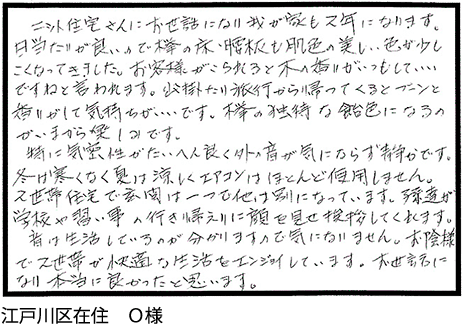 ニット住宅さんにお世話になり我が家も2年になります。
日当たりが良いので欅の床・腰板も肌色の美しい色が少し
こくなってきました。お客様がこられると木の香りがいつもして、いい
ですねと言われます。公掛たり旅行から帰ってくるとプーンと
香りがして気持ちがいいです。欅の独特な飴色になるの
がいまから楽しみです。
特に気密性がたいへん良く外の音が気にならず静かです。
冬は寒くなく夏は涼しくエアコンはほとんど使用しません。
2世帯住宅で玄関は一つで他は別になっています。孫達が
学校や習い事の行き帰えりに顔を見せ挨拶してくれます。
音は生活しているのが分かりますので気になりません。お陰様
で2世帯が快適な生活をエンジョイしています。お世話に
なり本当に良かったと思います。
江戸川区在住 O様